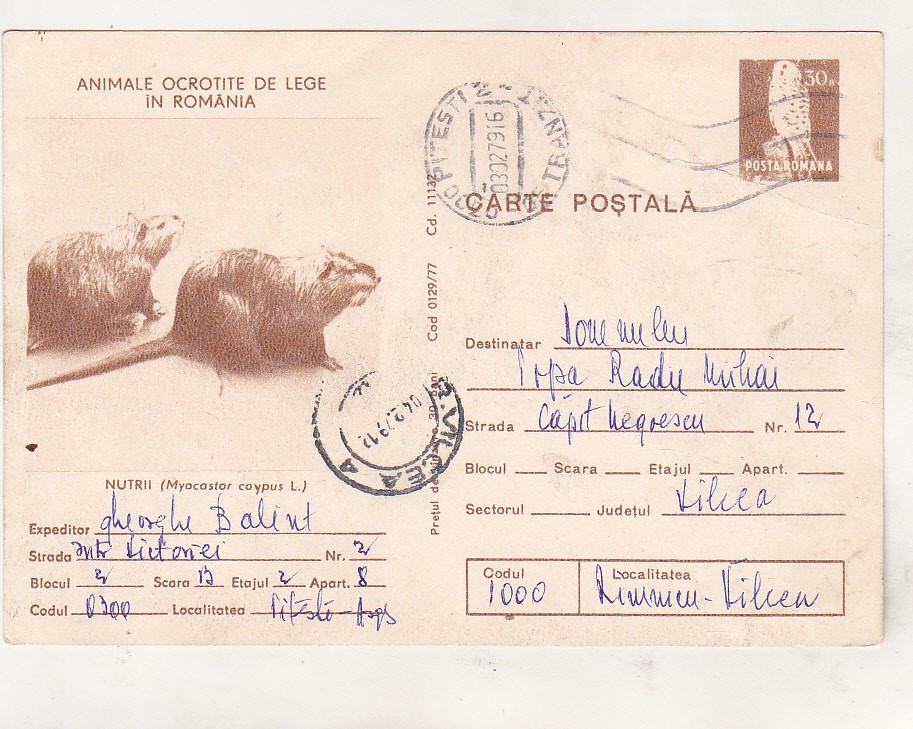 ANIMALE OCROTITE DE LEGE
IN ROMÂNIA
NUTRII (Myocastor coypus L.)
Expeditor Gheorghe Balint
Strada Intr Victoriei Nr. 2
Blocul 2 Scara B Etajul 2 Apart. 8
Codul 0300 Localitatea Pitești-Argș
Cod 0129/77 Cd. 11132
PITEȘTI 2
03027916
R. VILCEA A
04.2.79.12
30
POSTA ROMANA
CARTE POȘTALĂ
Destinatar Domnului
Popa Radu Mihai
Strada Căpit Negoescu Nr. 12
Blocul Scara Etajul Apart.
Sectorul Județul Vilcea
Codul 1000
Localitatea Rimnicu-Vilcea